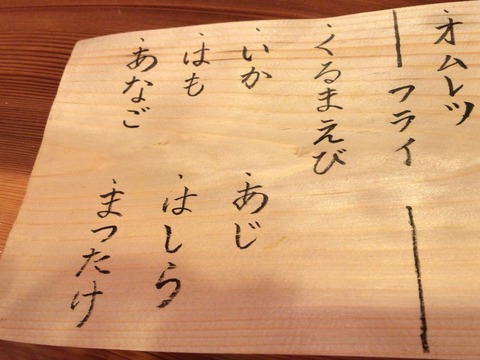 ・オムレツ
— フライ —
・くるまえび
・いか ・あじ
・はも ・はしら
・あなご ・まつたけ